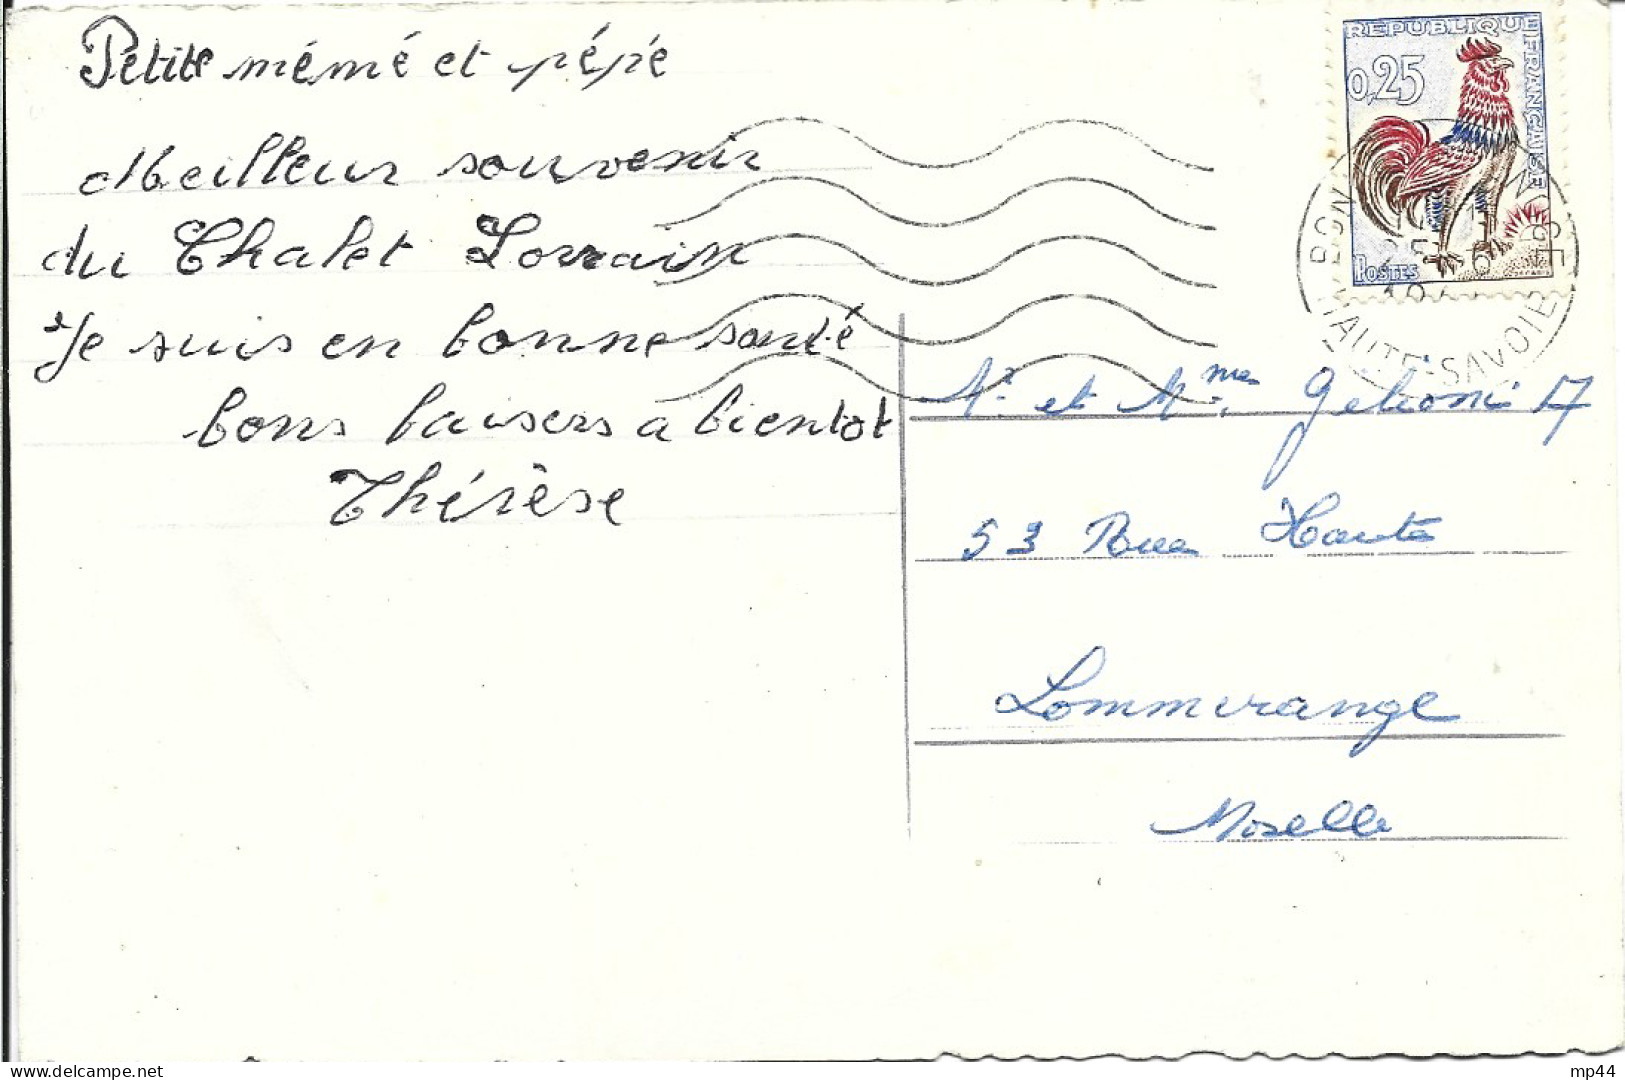 Petite mémé et pépé
Meilleur souvenir
du Chalet Lorrain
Je suis en bonne santé
bons baisers a bientot
Thérèse
REPUBLIQUE FRANCAISE
0,25
POSTES
HAUTE-SAVOIE
Mr. et Mme.
53 Rue Haute
Lommerange
Moselle
mp44